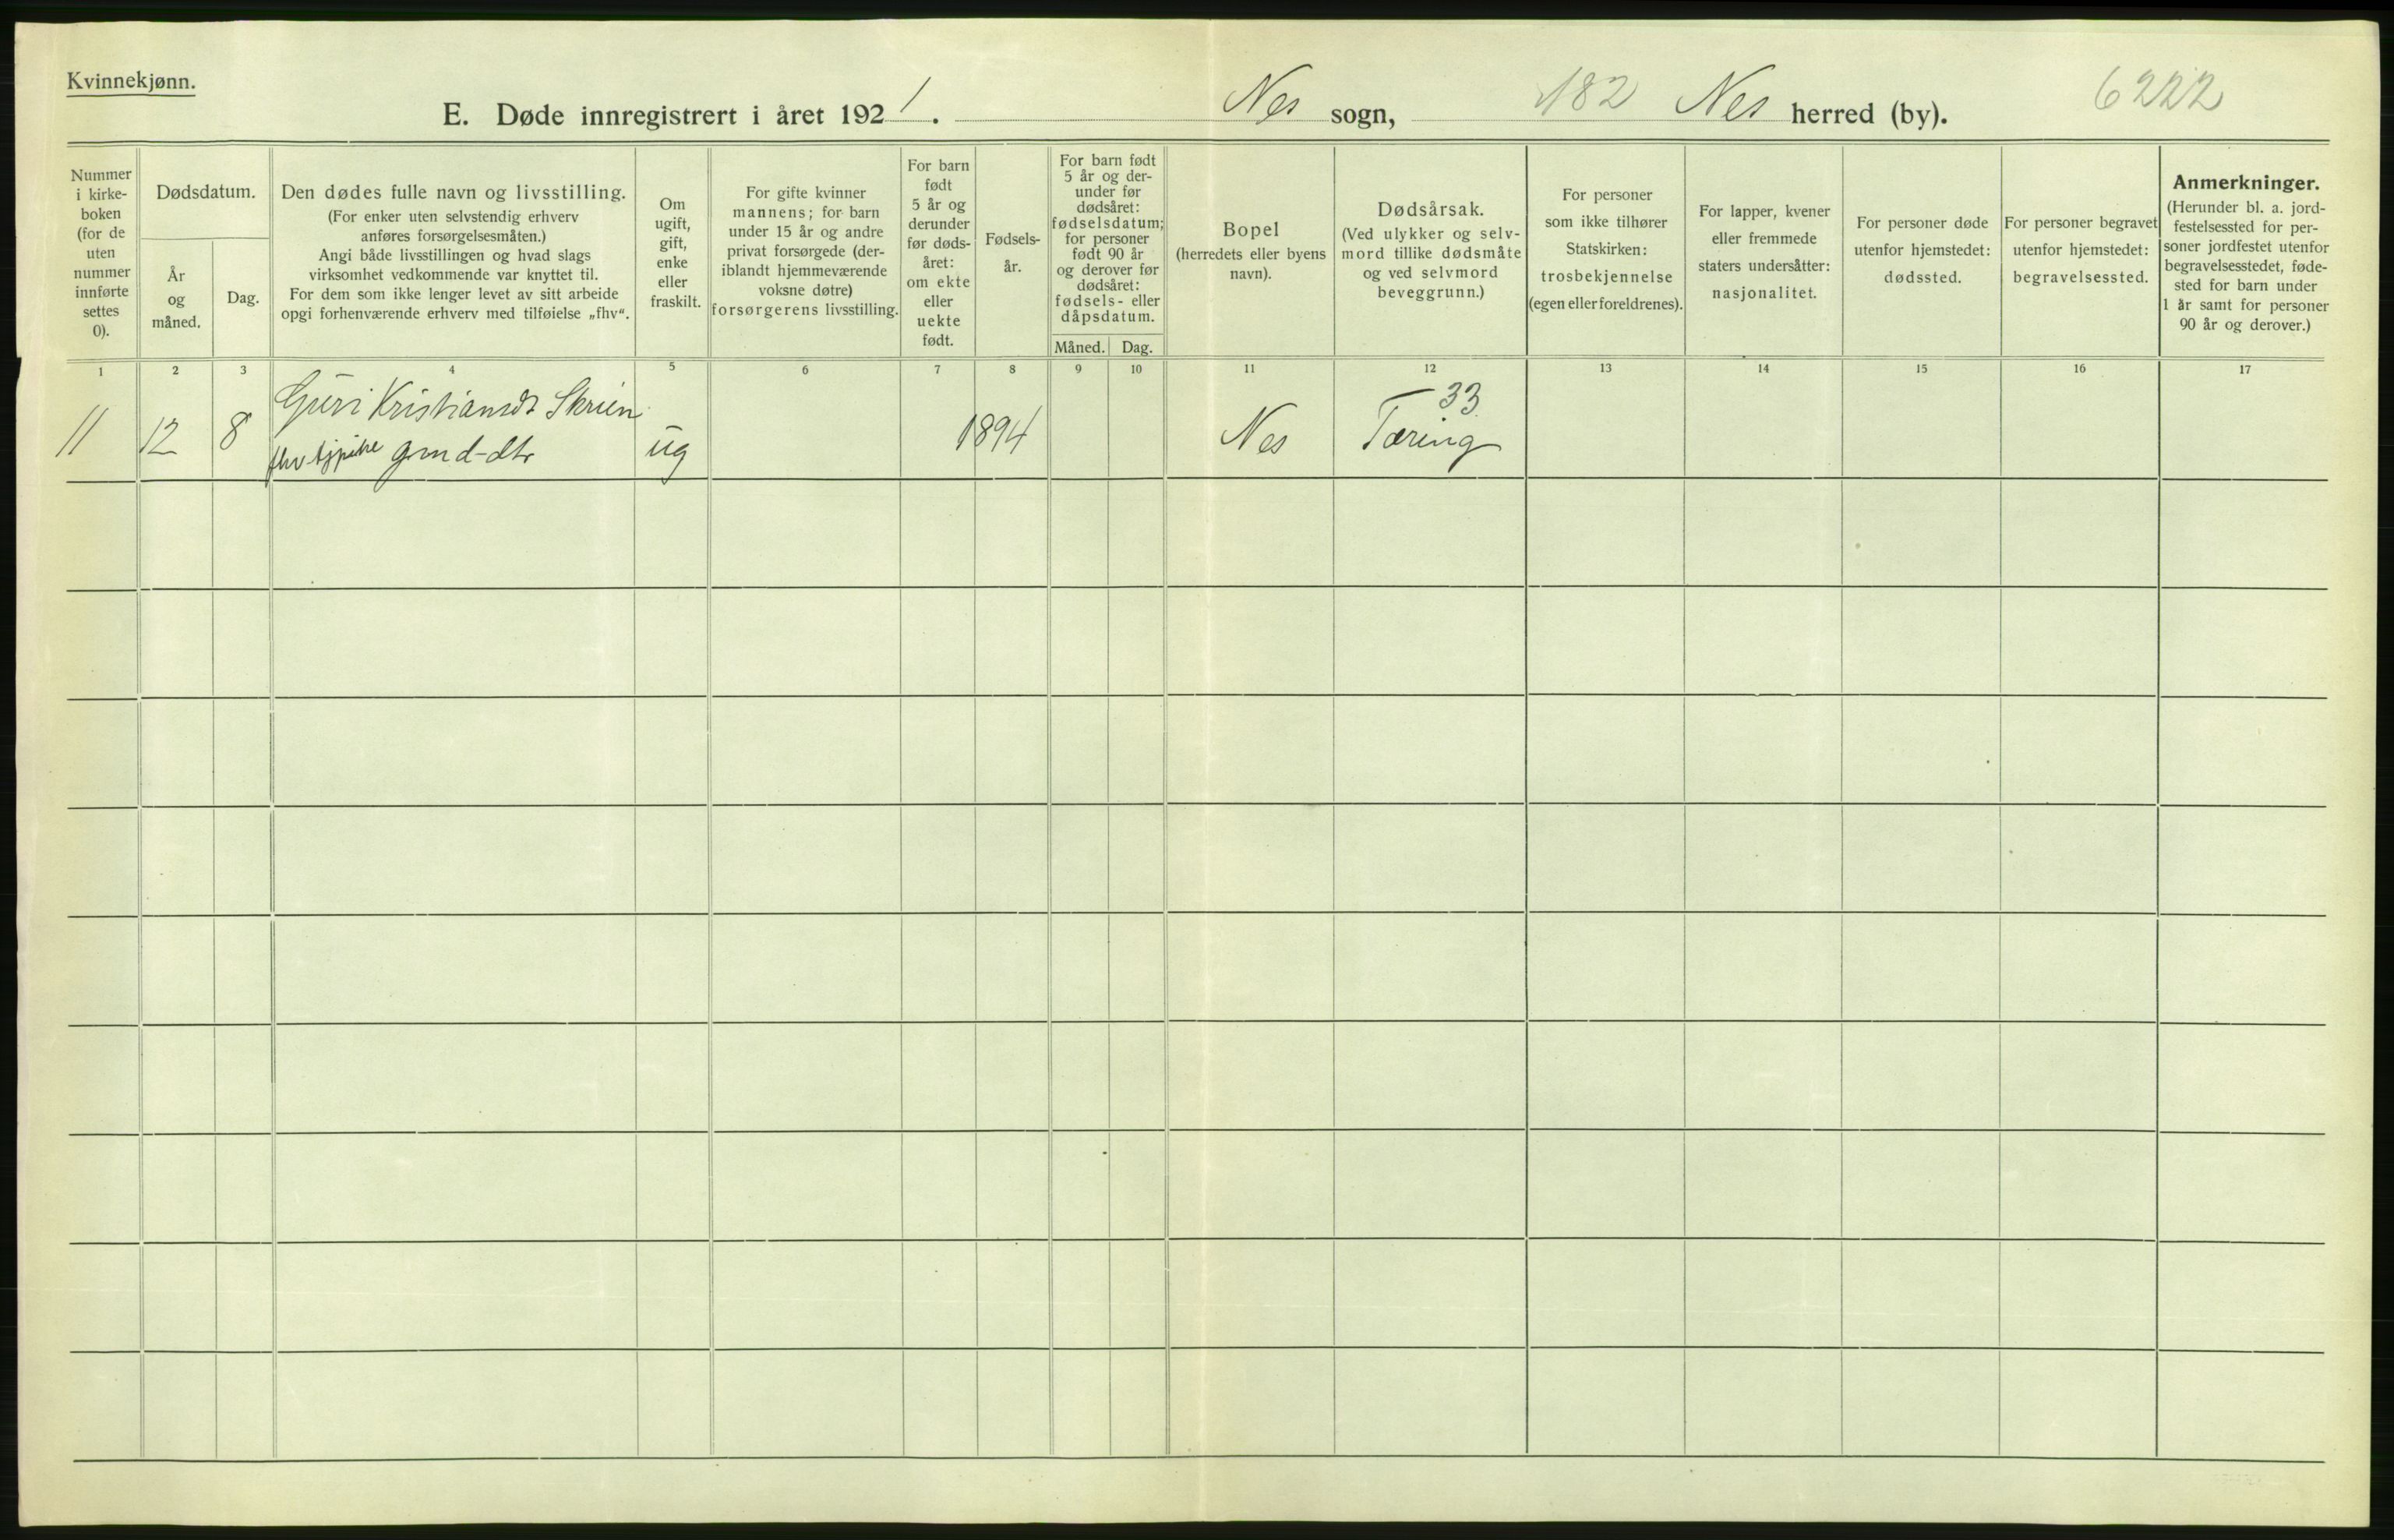 Kvinnekjønn.
E. Døde innregistrert i året 1921. Nes sogn, 182 Nes herred (by). 6222
Nummer
i kirke-
boken
(for de
uten
nummer
innførte
settes
0).
Dødsdatum.
År
og
måned.
Dag.
Den dødes fulle navn og livsstilling.
(For enker uten selvstendig erhverv
anføres forsørgelsesmåten.)
Angi både livsstillingen og hvad slags
virksomhet vedkommende var knyttet til.
For dem som ikke lenger levet av sitt arbeide
opgi forhenværende erhverv med tilføielse „fhv“.
Om
ugift,
gift,
enke
eller
fraskilt.
For gifte kvinner
mannens; for barn
under 15 år og andre
privat forsørgede (der-
iblandt hjemmeværende
voksne døtre)
forsørgerens livsstilling.
For barn
født
5 år og
derunder
før døds-
året:
om ekte
eller
uekte
født.
Fødsels-
år.
For barn født
5 år og der-
under før
dødsåret:
fødselsdatum;
for personer
født 90 år
og derover før
dødsåret:
fødsels- eller
dåpsdatum.
Måned. Dag.
Bopel
(herredets eller byens
navn).
Dødsårsak.
(Ved ulykker og selv-
mord tillike dødsmåte
og ved selvmord
beveggrunn.)
For personer
som ikke tilhører
Statskirken:
trosbekjennelse
(egen eller foreldrenes).
For lapper, kvener
eller fremmede
staters undersåtter:
nasjonalitet.
For personer døde
utenfor hjemstedet:
dødssted.
For personer begravet
utenfor hjemstedet:
begravelsessted.
Anmerkninger.
(Herunder bl. a. jord-
festelsessted for per-
soner jordfestet utenfor
begravelsesstedet, føde-
sted for barn under
1 år samt for personer
90 år og derover.)
1 2 3 4 5 6 7 8 9 10 11 12 13 14 15 16 17
Guri Kristiansdt Skrien 33
11 12 8 fhv tjpike grmd-dtr ug 1894 Nes Tæring